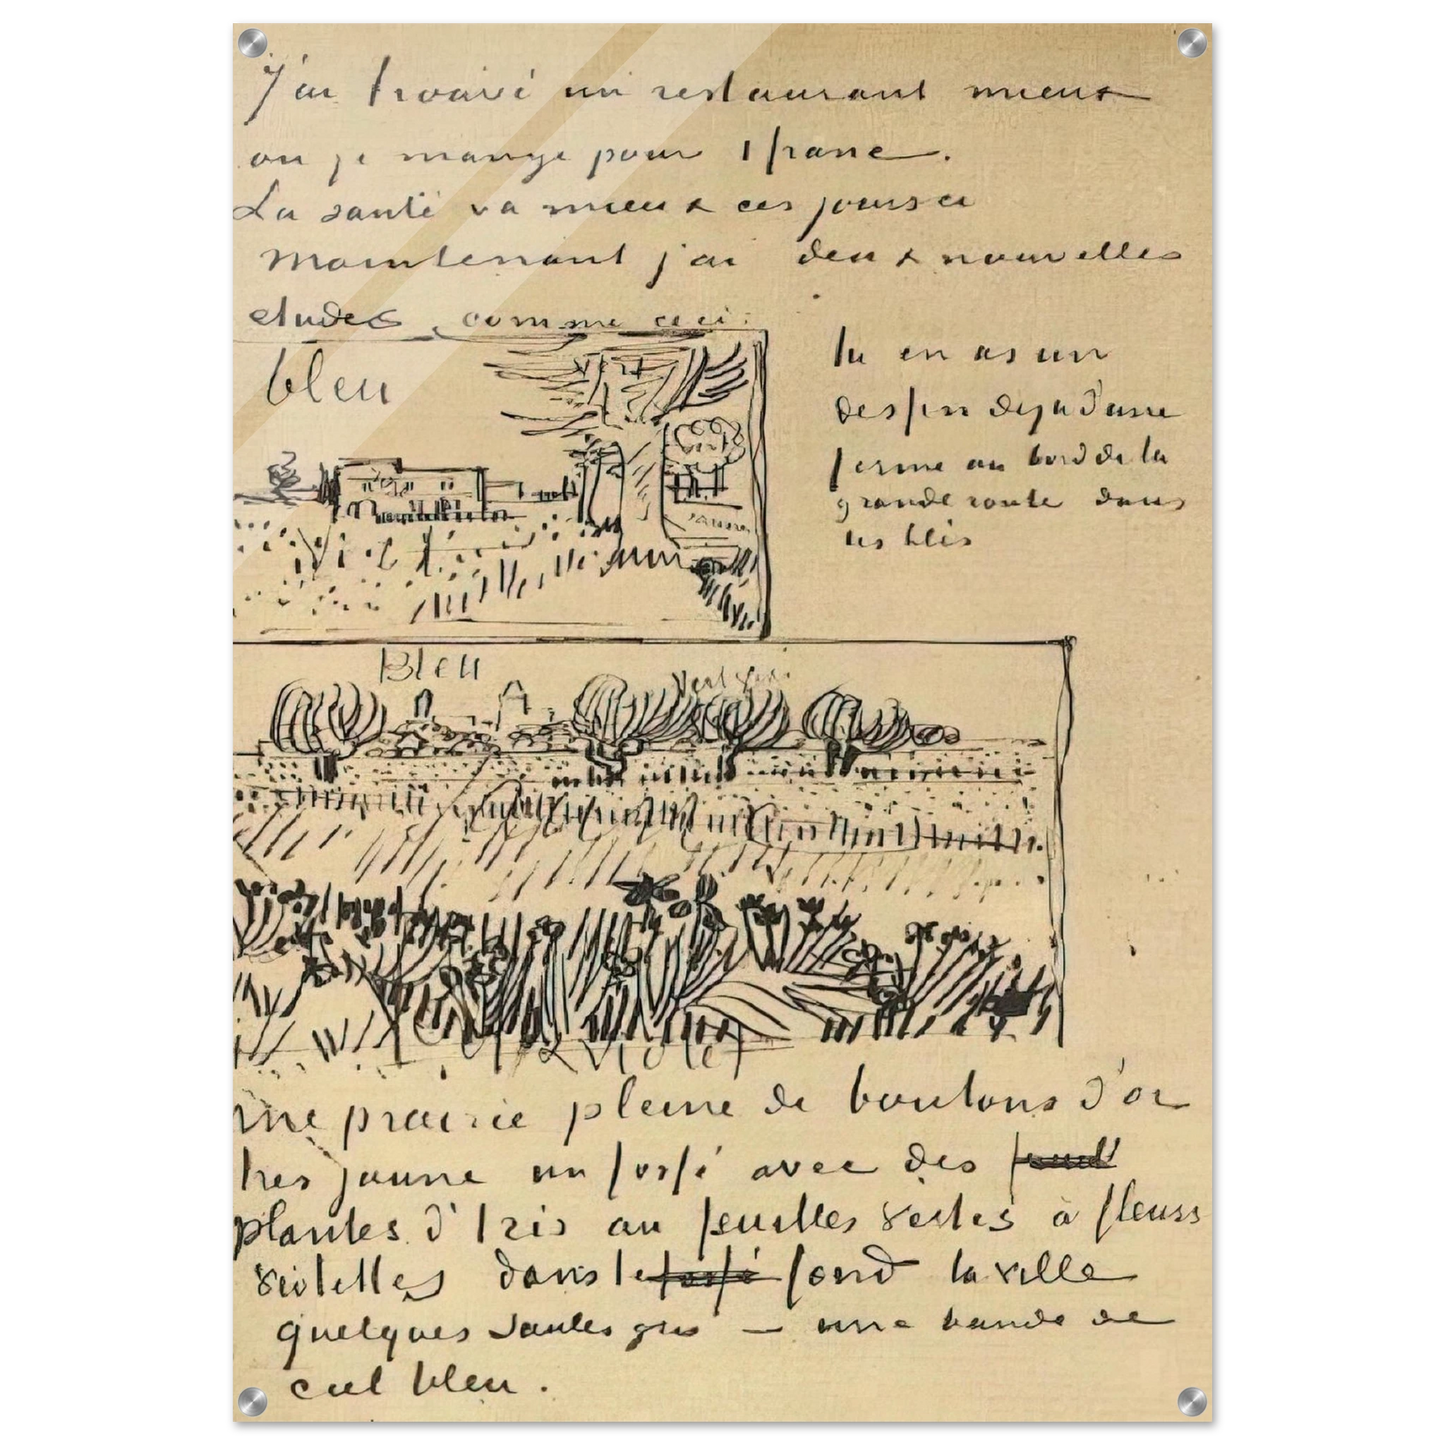 J'ai trouvé un restaurant mieux
ou je mange pour 1 franc.
La santé va mieux ces jours ci
Maintenant j'ai deux nouvelles
etudes comme ceci:
bleu
vert
jaune
tu en as un
dessin deja d'une
ferme au bord de la
grande route dans
les blés
Bleu
Vert
violet
une prairie pleine de boutons d'or
tres jaune un fossé avec des
plantes d'Iris au feuilles vertes à fleurs
violettes dans le fossé fond la ville
quelques saules gris – une bande de
ciel bleu.